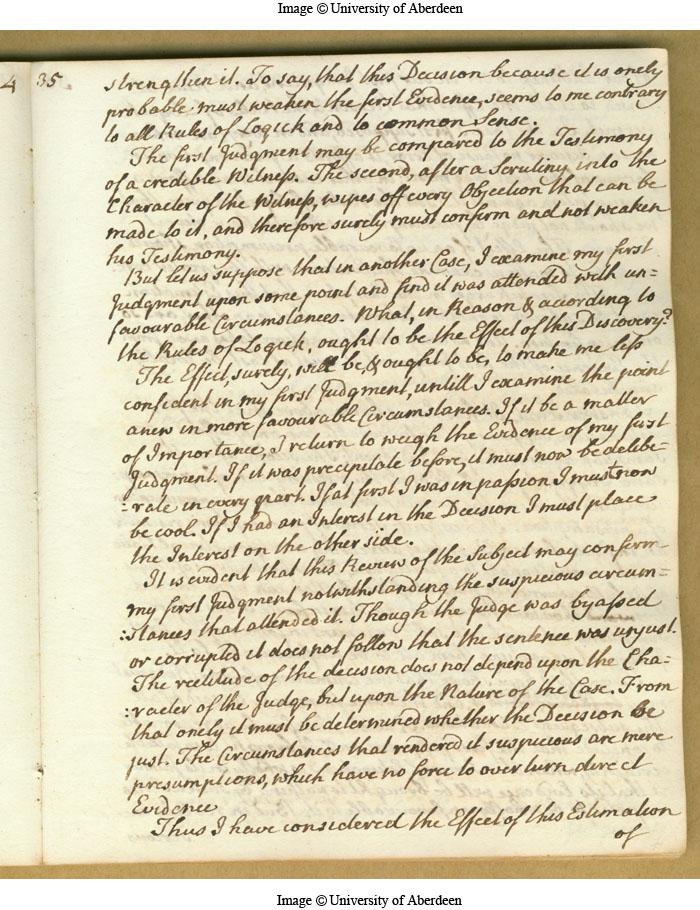 Image © University of Aberdeen
4 35.
strengthen it. To say, that this Decision because it is onely
probable must weaken the first Evidence, seems to me contrary
to all Rules of Logick and to common Sense.
The first Judgment may be compared to the Testimony
of a credible Witness. The second, after a Scrutiny into the
Character of the Witness, wipes off every Objection that can be
made to it, and therefore surely must confirm and not weaken
his Testimony.
But let us suppose that in another Case, I examine my first
Judgment upon some point and find it was attended with un=
favourable Circumstances. What, in Reason & according to
the Rules of Logick, ought to be the Effect of this Discovery?
The Effect, surely, will be, & ought to be, to make me less
confident in my first Judgment, untill I examine the point
anew in more favourable Circumstances. If it be a matter
of Importance, I return to weigh the Evidence of my first
Judgment. If it was precipitate before, it must now be delibe=
=rate in every part. If at first I was in passion I must now
be cool. If I had an Interest in the Decision I must place
the Interest on the other side.
It is evident that this Review of the Subject may confirm
my first Judgment notwithstanding the suspicious circum=
:stances that attended it. Though the Judge was byassed
or corrupted it does not follow that the sentence was unjust.
The rectitude of the decision does not depend upon the Cha=
:racter of the Judge, but upon the Nature of the Case. From
that onely it must be determined whether the Decision be
just. The Circumstances that rendered it suspicious are mere
presumptions, which have no force to overturn direct
Evidence
Thus I have considered the Effect of this Estimation
of
Image © University of Aberdeen